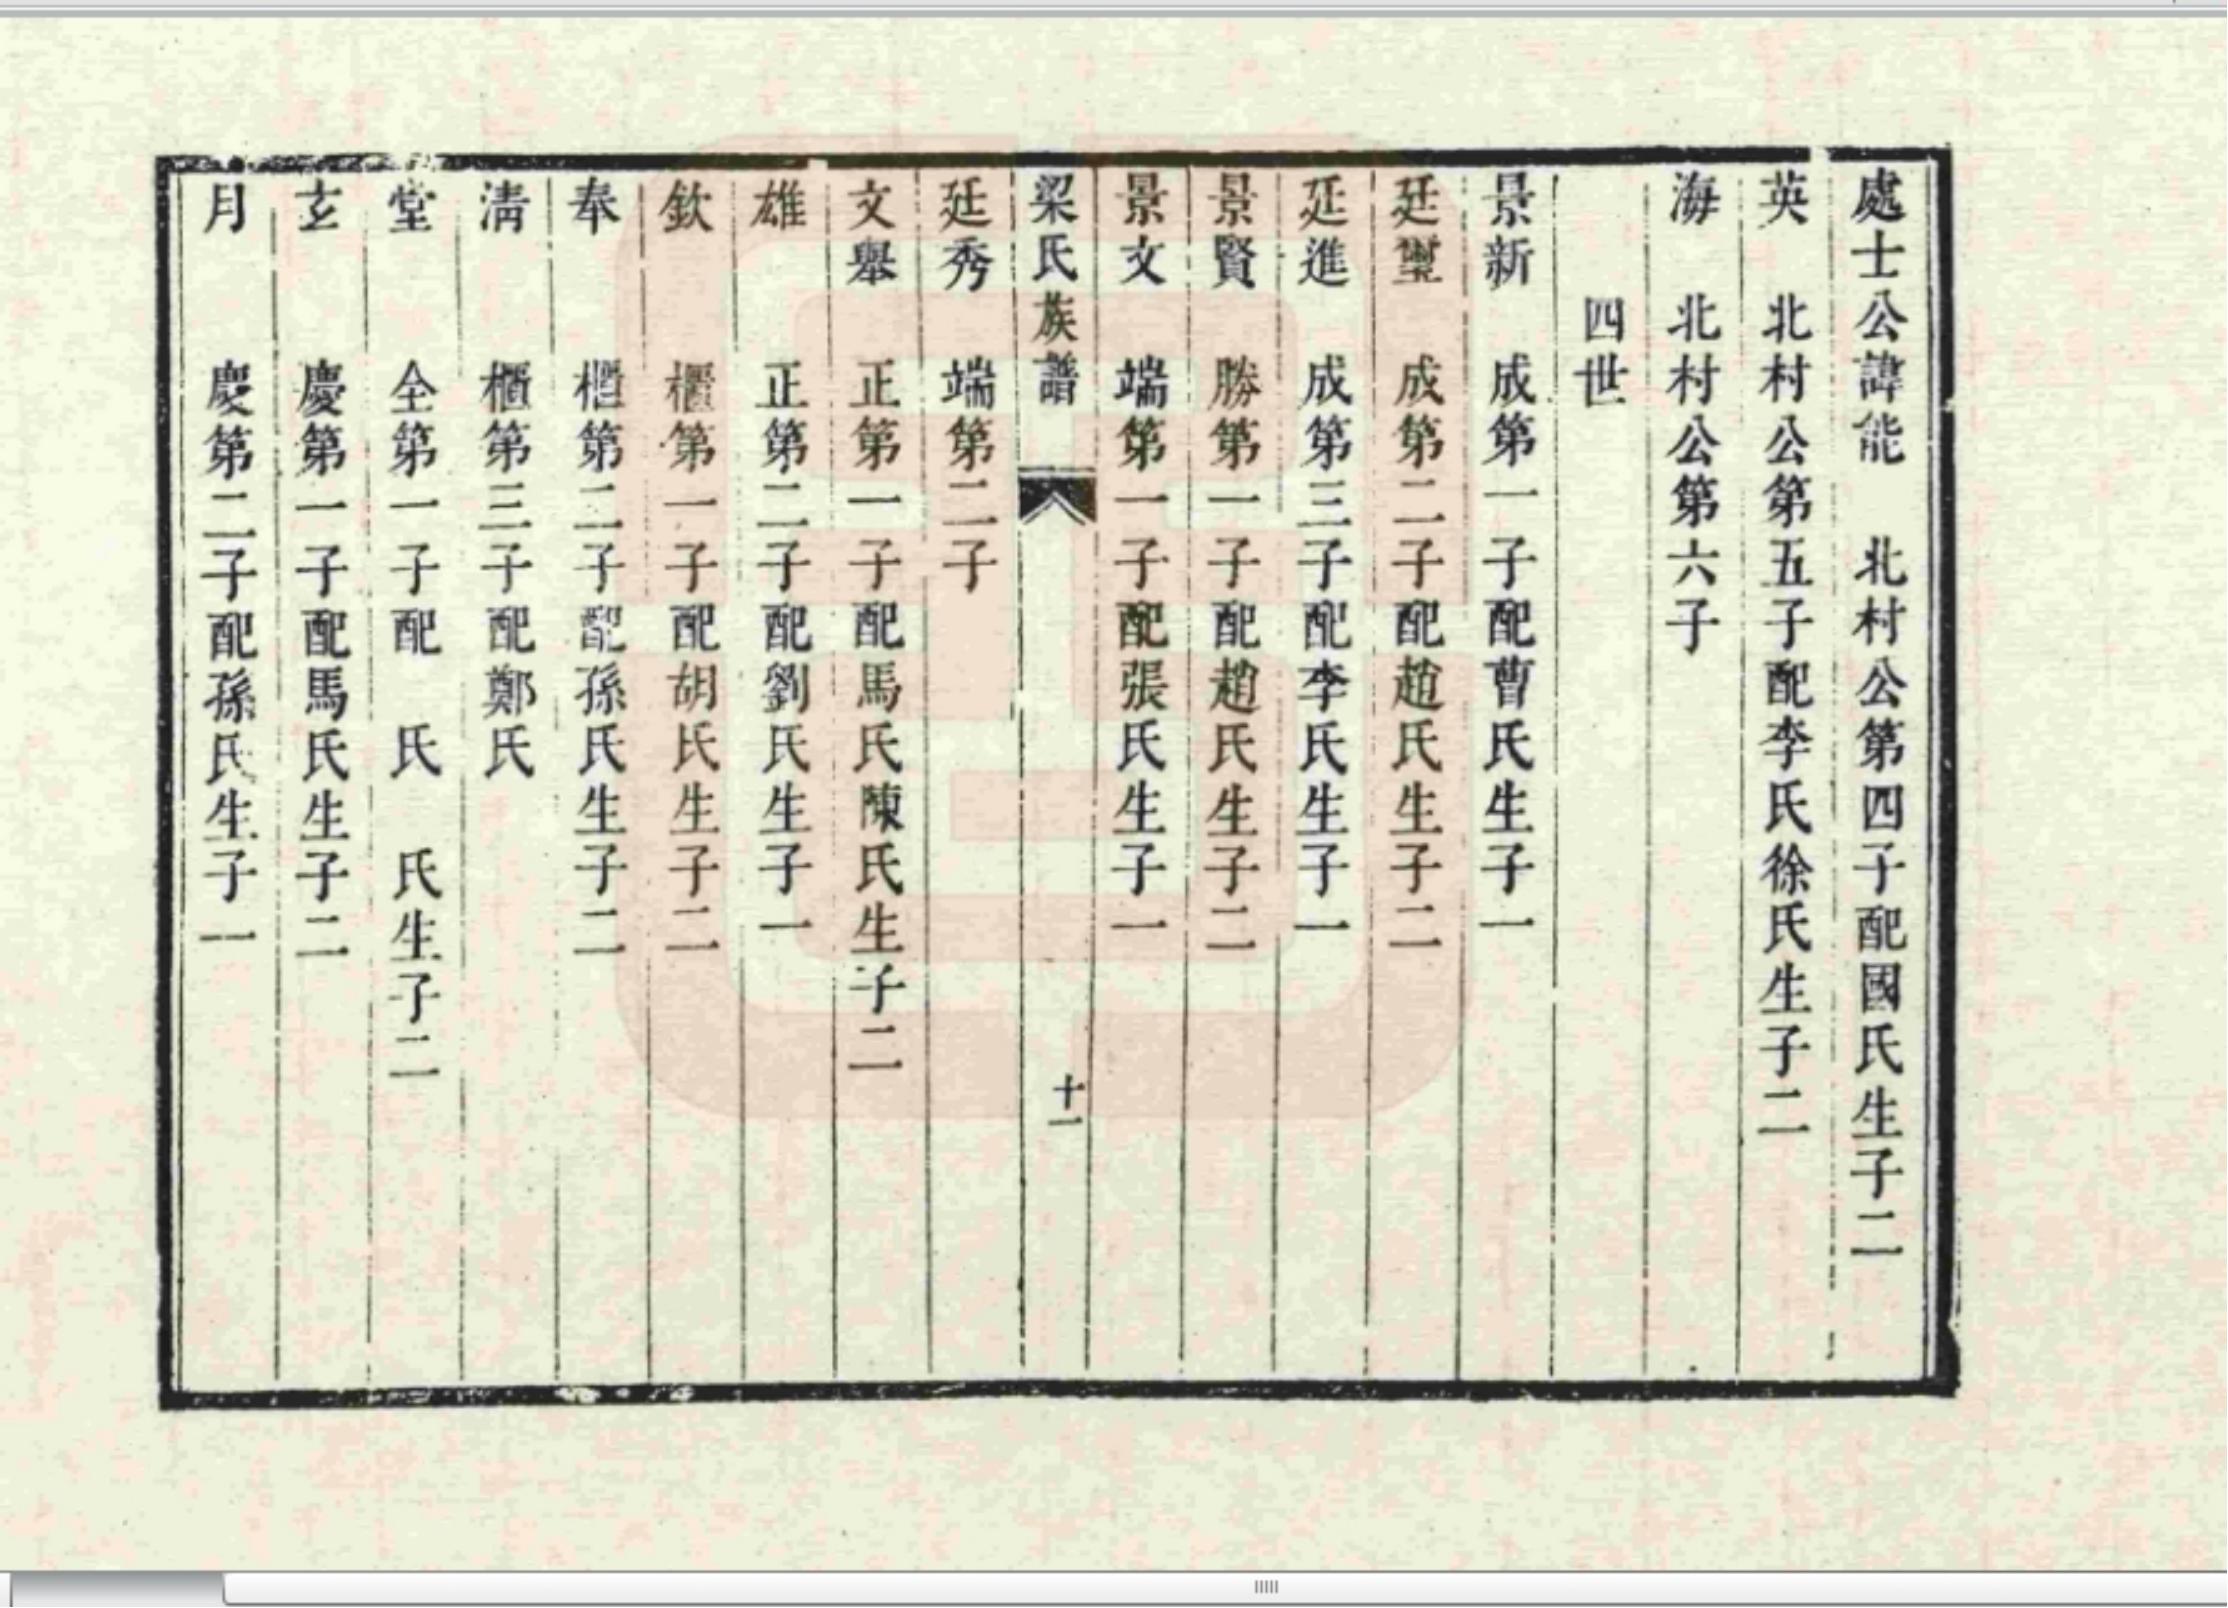 處士公諱能 北村公第四子配國氏生子二
英 北村公第五子配李氏徐氏生子二
海 北村公第六子
四世
景新 成第一子配曹氏生子一
廷璽 成第二子配趙氏生子二
廷進 成第三子配李氏生子一
景賢 勝第一子配趙氏生子二
景文 端第一子配張氏生子一
梁氏族譜 十一
廷秀 端第二子
文舉 正第一子配馬氏陳氏生子二
雄 正第二子配劉氏生子一
欽 櫃第一子配胡氏生子二
奉 櫃第二子配孫氏生子二
淸 櫃第三子配鄭氏
堂 全第一子配 氏 氏生子二
玄 慶第一子配馬氏生子二
月 慶第二子配孫氏生子一